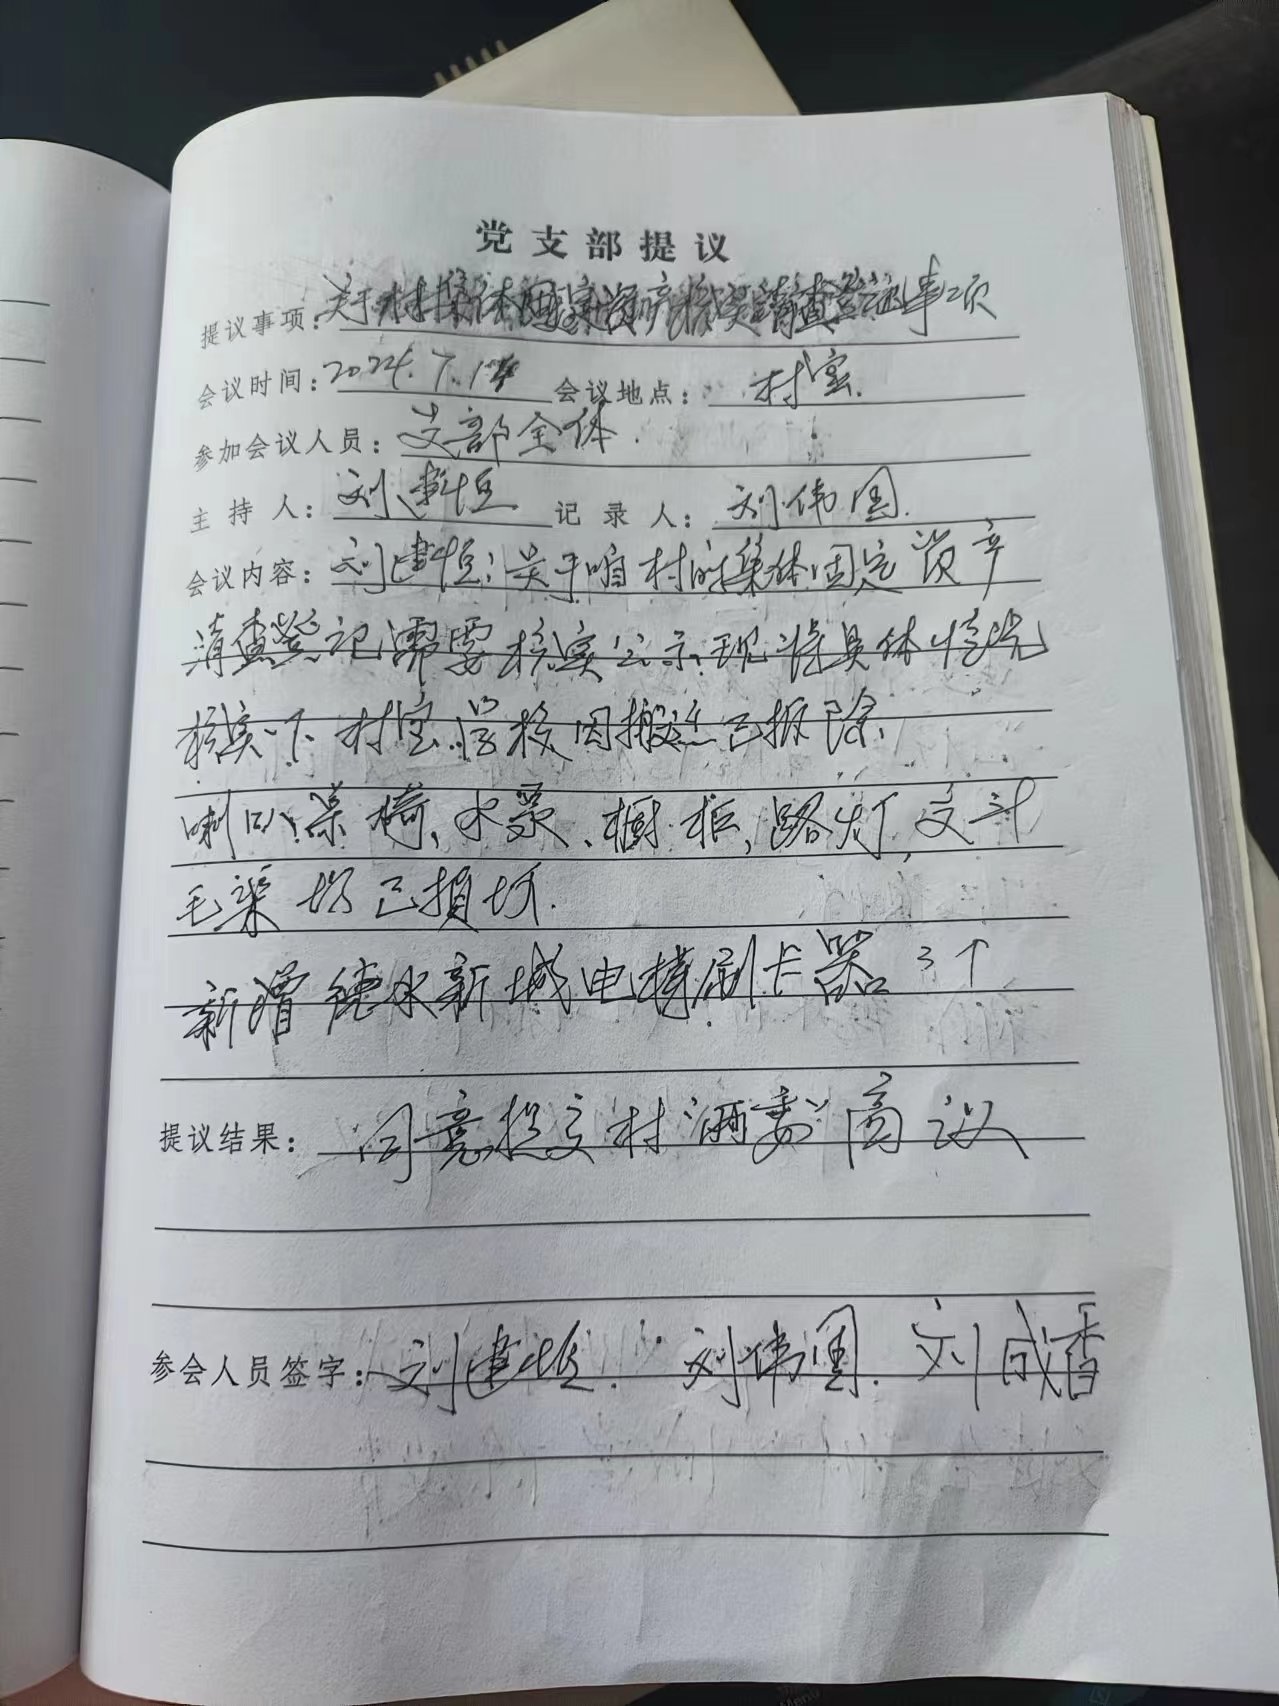 党支部提议
提议事项：关于村集体固定资产核实清查登记事项
会议时间：2024.7.14 会议地点：村室.
参加会议人员：支部全体.
主持人：刘建恒 记录人：刘伟国.
会议内容：刘建恒：关于咱村的集体固定资产
清查登记需要核实公示、现将具体情况
核实一下 村室、学校因搬迁已拆除.
喇叭、茶椅、水泵、橱柜,路灯,文斗
毛渠 均已损坏.
新增 德水新城电梯刷卡器 3个
提议结果：同意提交村"两委"商议
参会人员签字：刘建恒. 刘伟国. 刘成香